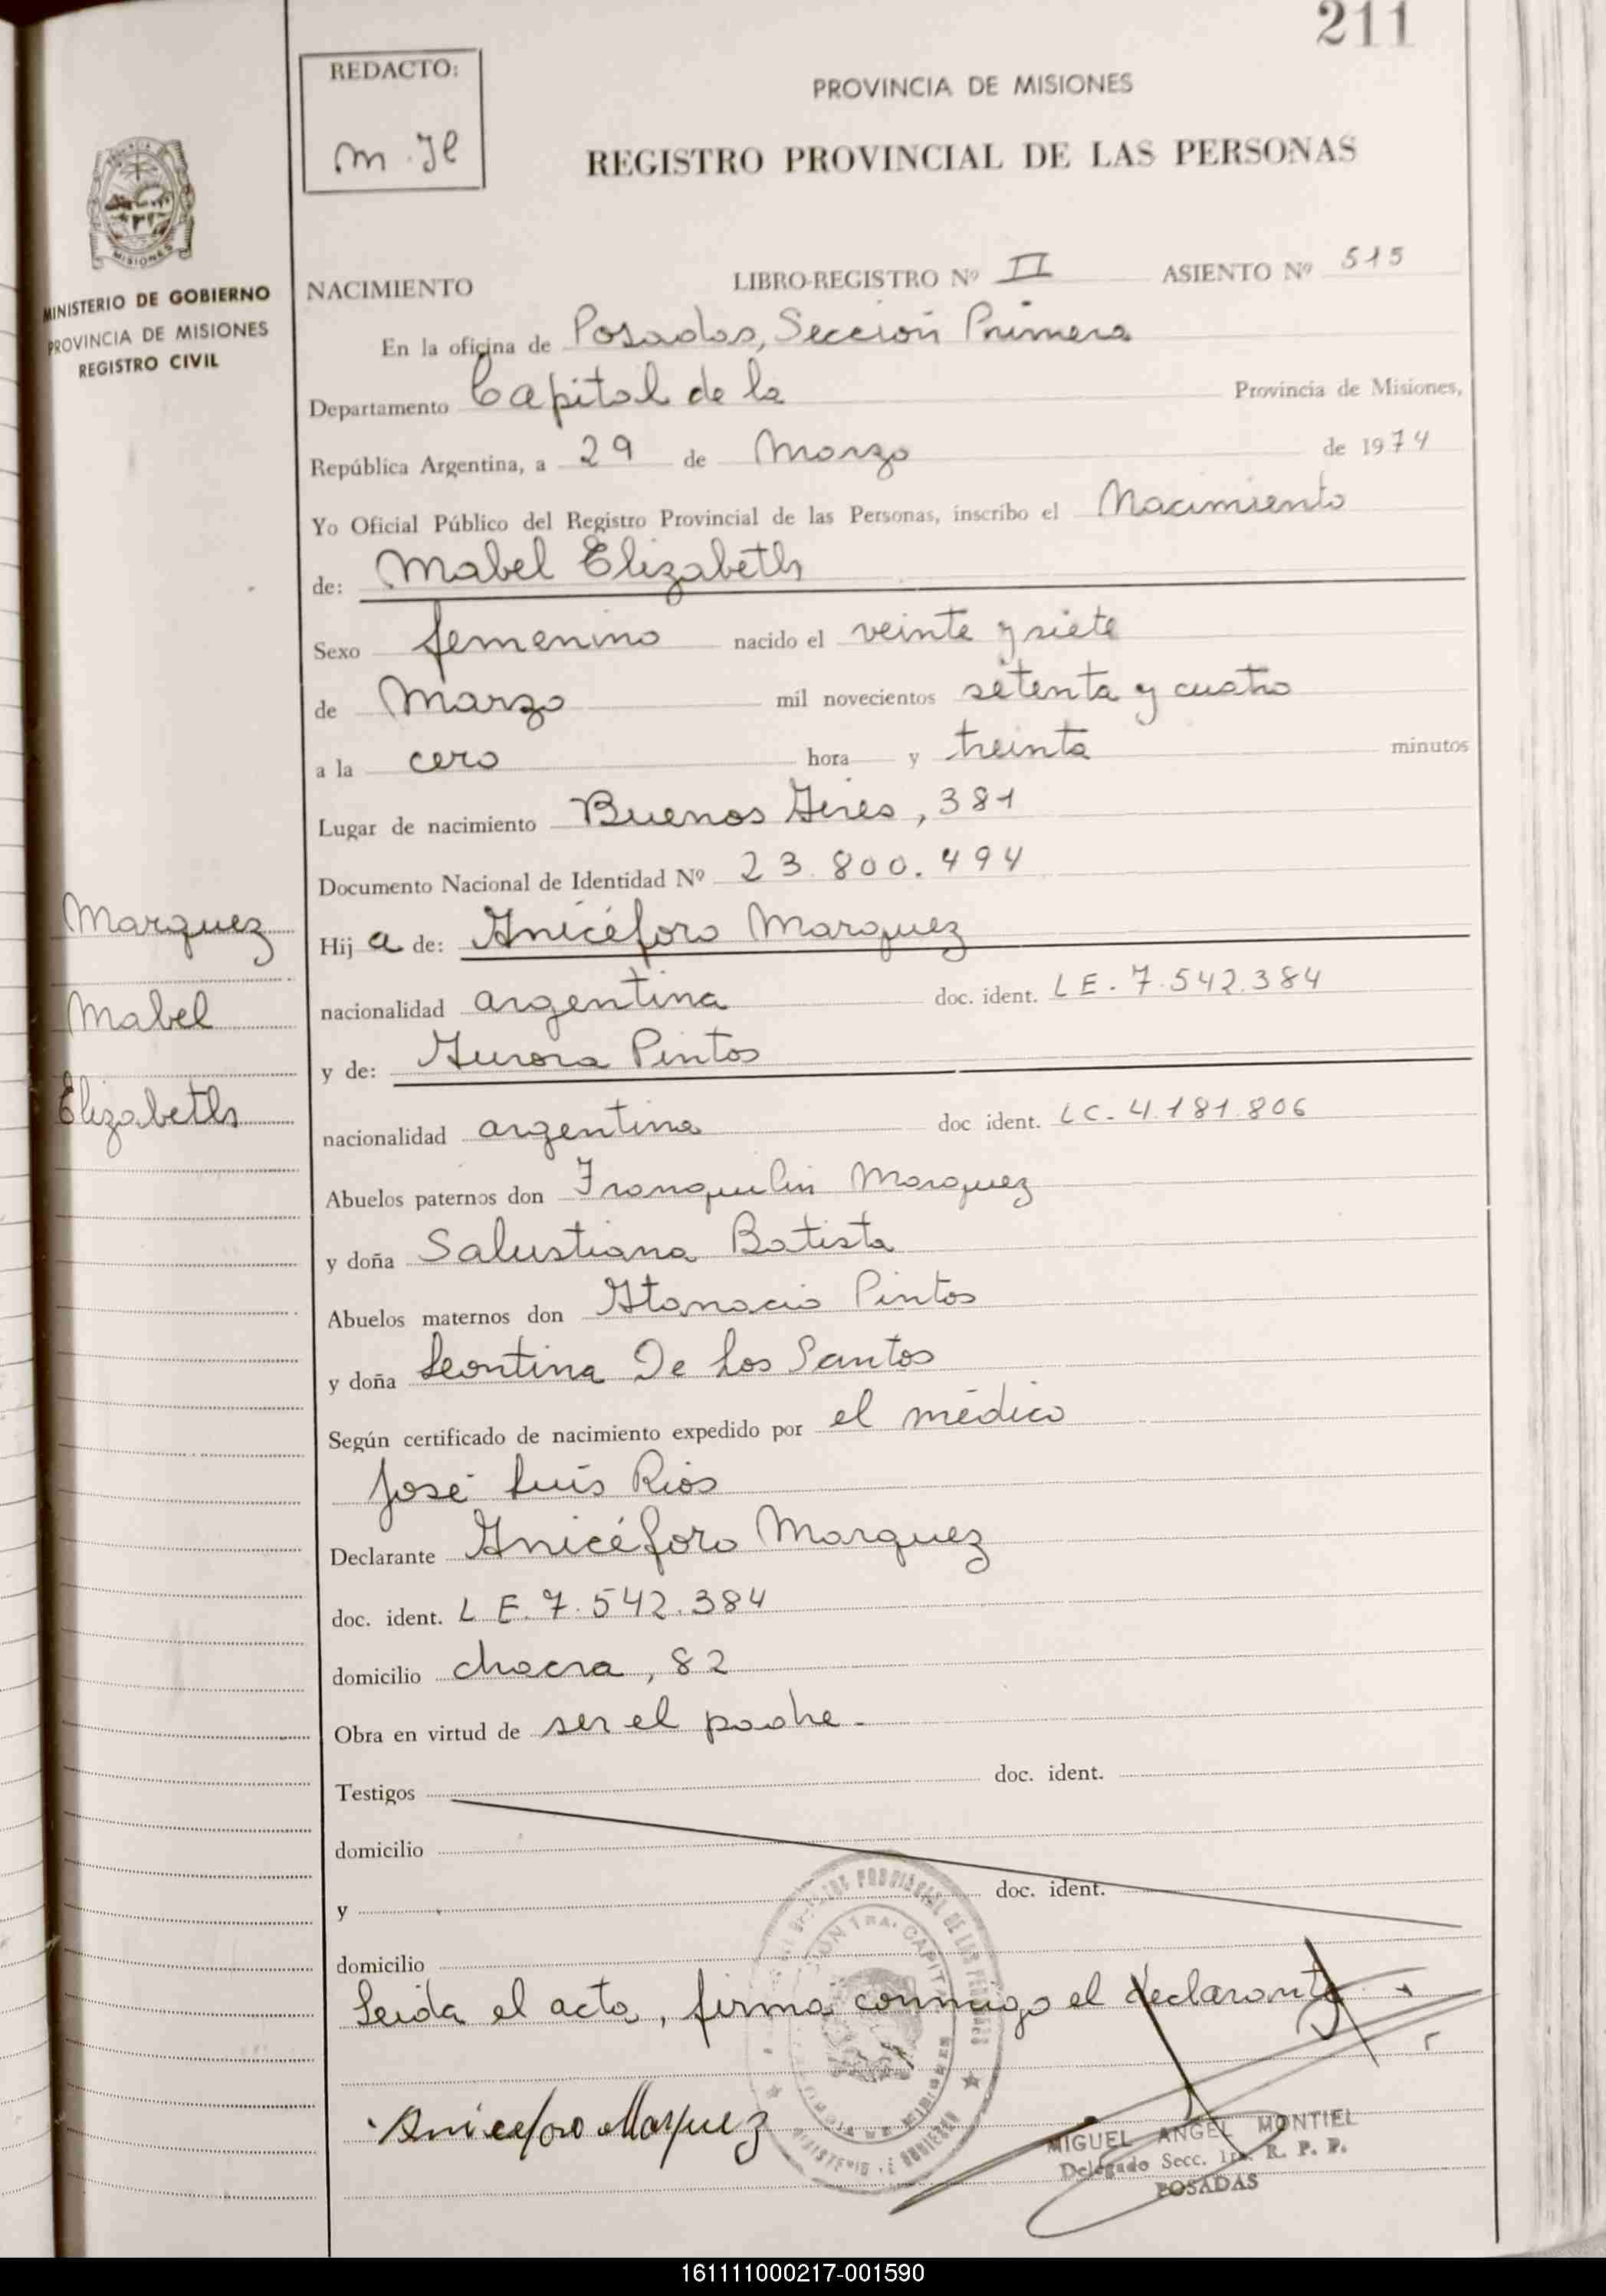 211
REDACTO:
m. Je
PROVINCIA DE MISIONES
REGISTRO PROVINCIAL DE LAS PERSONAS
MISIONES
MINISTERIO DE GOBIERNO
PROVINCIA DE MISIONES
REGISTRO CIVIL
NACIMIENTO LIBRO-REGISTRO Nº II ASIENTO Nº 515
En la oficina de Posadas, Sección Primera
Departamento Capital de la Provincia de Misiones,
República Argentina, a 29 de Marzo de 1974
Yo Oficial Público del Registro Provincial de las Personas, inscribo el Nacimiento
de: Mabel Elizabeth
Sexo femenino nacido el veinte y siete
de Marzo mil novecientos setenta y cuatro
a la cero hora y treinta minutos
Lugar de nacimiento Buenos Aires, 381
Documento Nacional de Identidad Nº 23.800.494
Marquez
Mabel
Elizabeth
Hij a de: Anicéforo Marquez
nacionalidad argentina doc. ident. LE. 7.542.384
y de: Aurora Pintos
nacionalidad argentina doc ident. LC. 4.181.806
Abuelos paternos don Tranquilin Marquez
y doña Salustiana Batista
Abuelos maternos don Atanacio Pintos
y doña Leontina De Los Santos
Según certificado de nacimiento expedido por el médico
José Luis Rios
Declarante Anicéforo Marquez
doc. ident. L E. 7.542.384
domicilio chacra, 82
Obra en virtud de ser el padre.
Testigos doc. ident.
domicilio
y doc. ident.
domicilio
Leida el acta, firma conmigo el declarante
Aniceforo Marquez
MIGUEL ANGEL MONTIEL
Delegado Secc. 1ra. R. P. P.
POSADAS
161111000217-001590